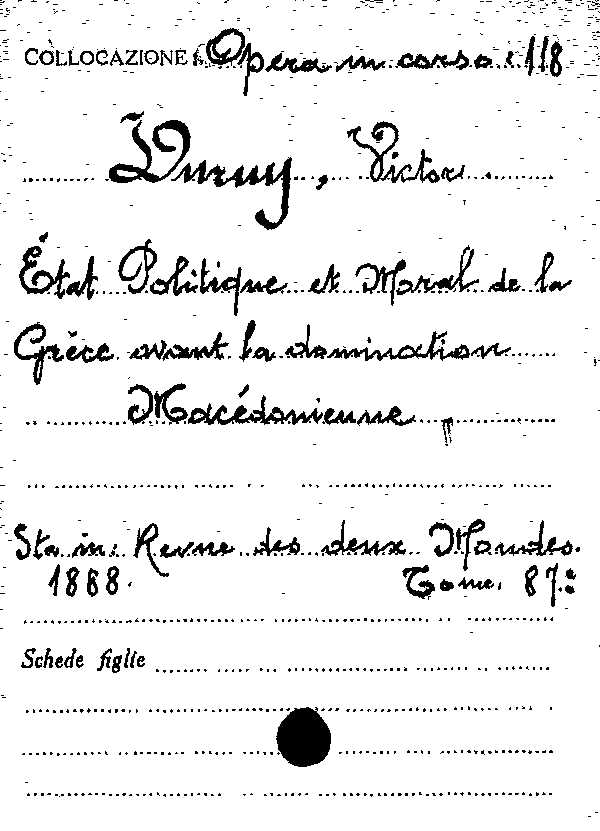 COLLOCAZIONE: Opera in corso: 118
Duruy, Victor.
État Politique et Moral de la
Grèce avant la domination
Macédonienne
Sta in: Revue des deux Mondes.
1888. Tome. 87.:
Schede figlie